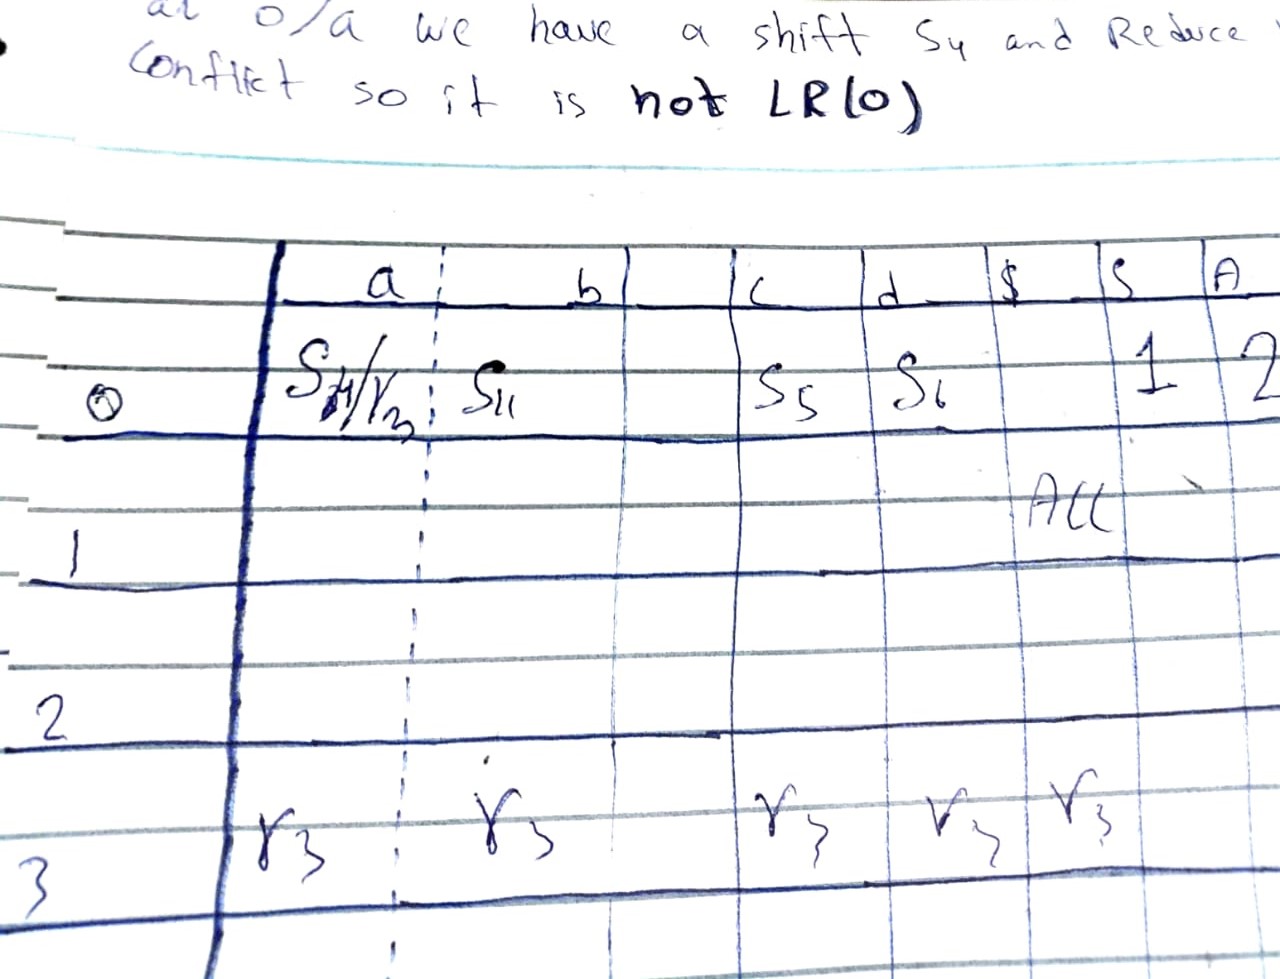 at 0/a we have a shift S4 and Reduce
Conflict so it is not LR(0)
a b c d $ S A
0 S4/r3 S11 S5 S6 1 2
1 Acc
2
3 r3 r3 r3 r3 r3